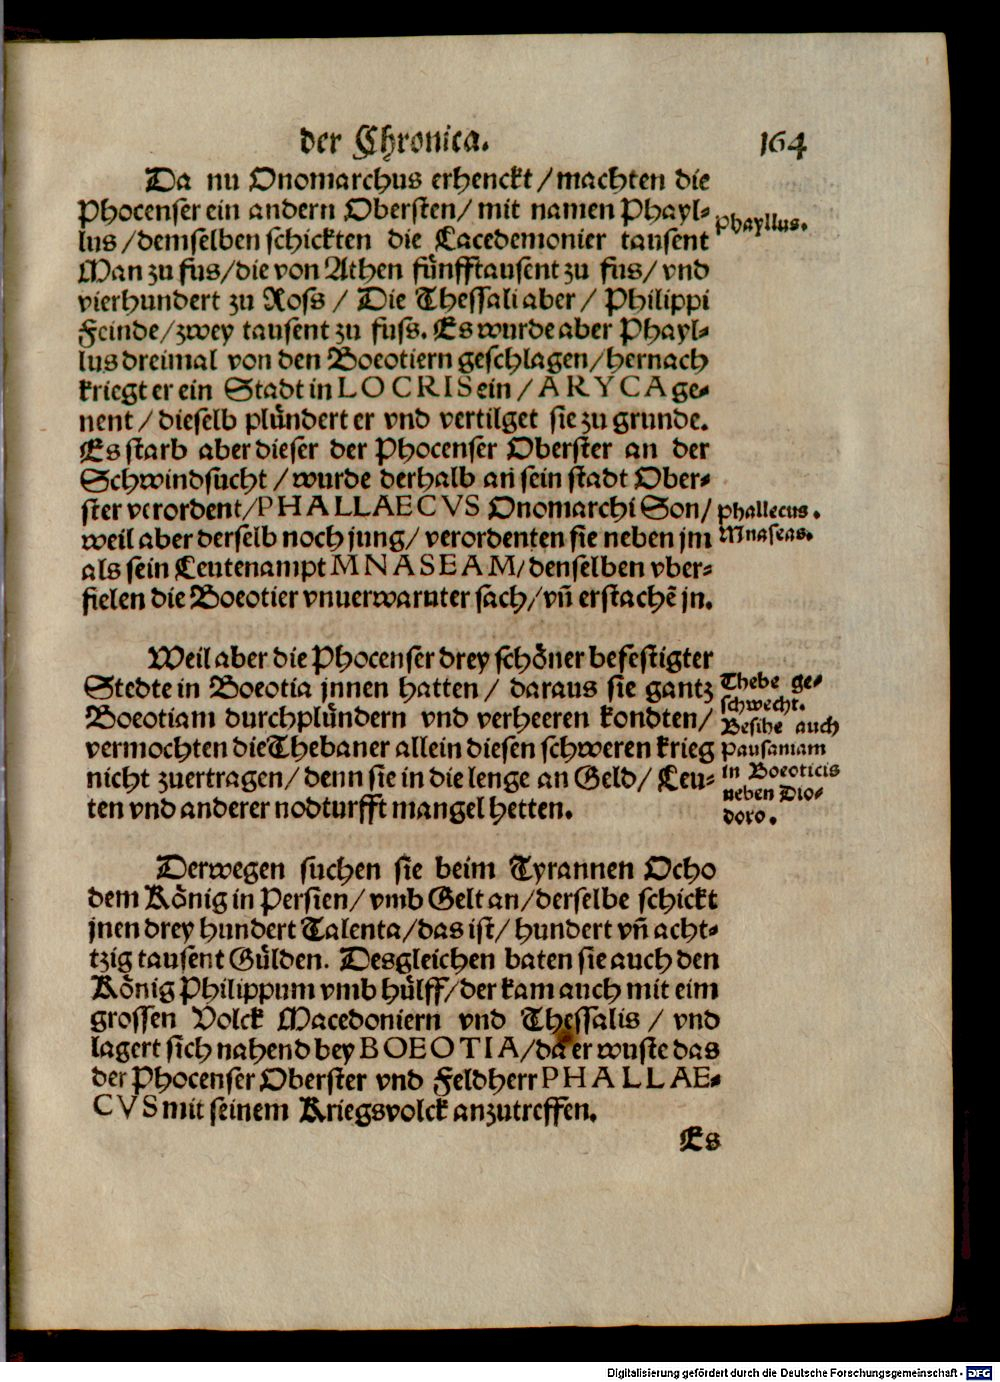 der Chronica.
164
Da nu Onomarchus erhenckt / machten die
Phocenser ein andern Obersten / mit namen Phayl-
lus / demselben schickten die Lacedemonier tausent
Man zu fus / die von Athen fünfftausent zu fus / vnd
vierhundert zu Ross / Die Thessali aber / Philippi
Feinde / zwey tausent zu fuss. Es wurde aber Phayl-
lus dreimal von den Boeotiern geschlagen / hernach
kriegt er ein Stadt in LOCRIS ein / ARYCA ge-
nent / dieselb plündert er vnd vertilget sie zu grunde.
Es starb aber dieser der Phocenser Oberster an der
Schwindsucht / wurde derhalb an sein stadt Ober-
ster verordent / PHALLAECVS Onomarchi Son /
weil aber derselb noch jung / verordenten sie neben jm
als sein Leutenampt MNASEAM / denselben vber-
fielen die Boeotier vnuerwarnter sach / vn̄ erstachē jn.
Phayllus.
Phallecus.
Mnaseas.
Weil aber die Phocenser drey schöner befestigter
Stedte in Boeotia jnnen hatten / daraus sie gantz
Boeotiam durchplündern vnd verheeren kondten /
vermochten die Thebaner allein diesen schweren krieg
nicht zuertragen / denn sie in die lenge an Geld / Leu-
ten vnd anderer nodturfft mangel hetten.
Thebe ge-
schwecht.
Besihe auch
Pausaniam
in Boeoticis
neben Dio-
doro.
Derwegen suchen sie beim Tyrannen Ocho
dem König in Persien / vmb Gelt an / derselbe schickt
jnen drey hundert Talenta / das ist / hundert vn̄ acht-
tzig tausent Gülden. Desgleichen baten sie auch den
König Philippum vmb hülff / der kam auch mit eim
grossen Volck Macedoniern vnd Thessalis / vnd
lagert sich nahend bey BOEOTIA / da er wuste das
der Phocenser Oberster vnd Feldherr PHALLAE-
CVS mit seinem Kriegsvolck anzutreffen.
Es
Digitalisierung gefördert durch die Deutsche Forschungsgemeinschaft - DFG